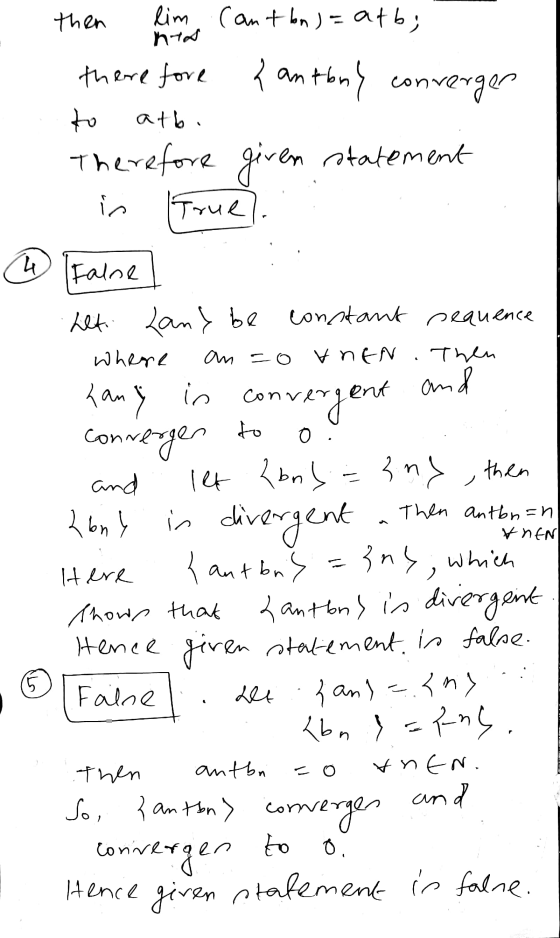 then lim (an + bn) = a+b;
n→∞
therefore {an+bn} converges
to a+b.
Therefore given statement
is True.
④ False
Let {an} be constant sequence
where an = 0 ∀ n∈N. Then
{an} is convergent and
converges to 0.
and let {bn} = {n}, then
{bn} is divergent. Then an+bn = n
∀ n∈N
Here {an+bn} = {n}, which
shows that {an+bn} is divergent.
Hence given statement is false.
⑤ False. Let {an} = {n}
{bn} = {-n}.
Then an+bn = 0 ∀ n∈N.
So, {an+bn} converges and
converges to 0.
Hence given statement is false.